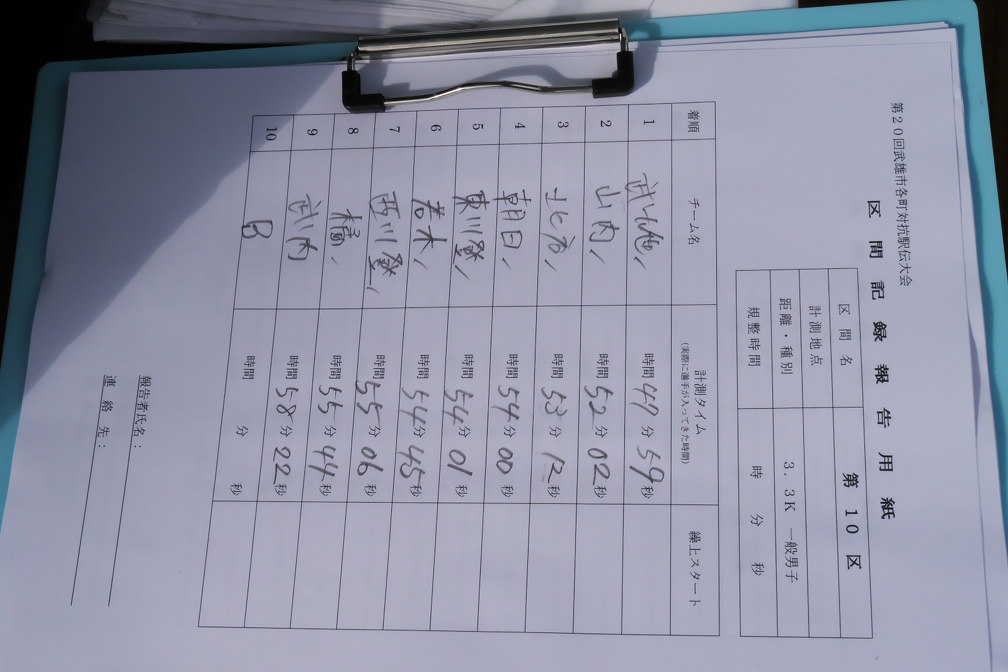 第20回武雄市各町対抗駅伝大会
区間記録報告用紙
区間名 第10区
計測地点
距離・種別 3.3K 一般男子
規整時間 時 分 秒
着順 チーム名 計測タイム 繰上スタート
(実際に選手が入ってきた時間)
1 武雄 時間 47分 59秒
2 山内 時間 52分 02秒
3 北方 時間 53分 12秒
4 朝日 時間 54分 00秒
5 東川登 時間 54分 01秒
6 若木 時間 54分 45秒
7 西川登 時間 55分 06秒
8 橘 時間 55分 44秒
9 武内 時間 58分 22秒
10 B 時間 分 秒
報告者氏名:
連絡先: